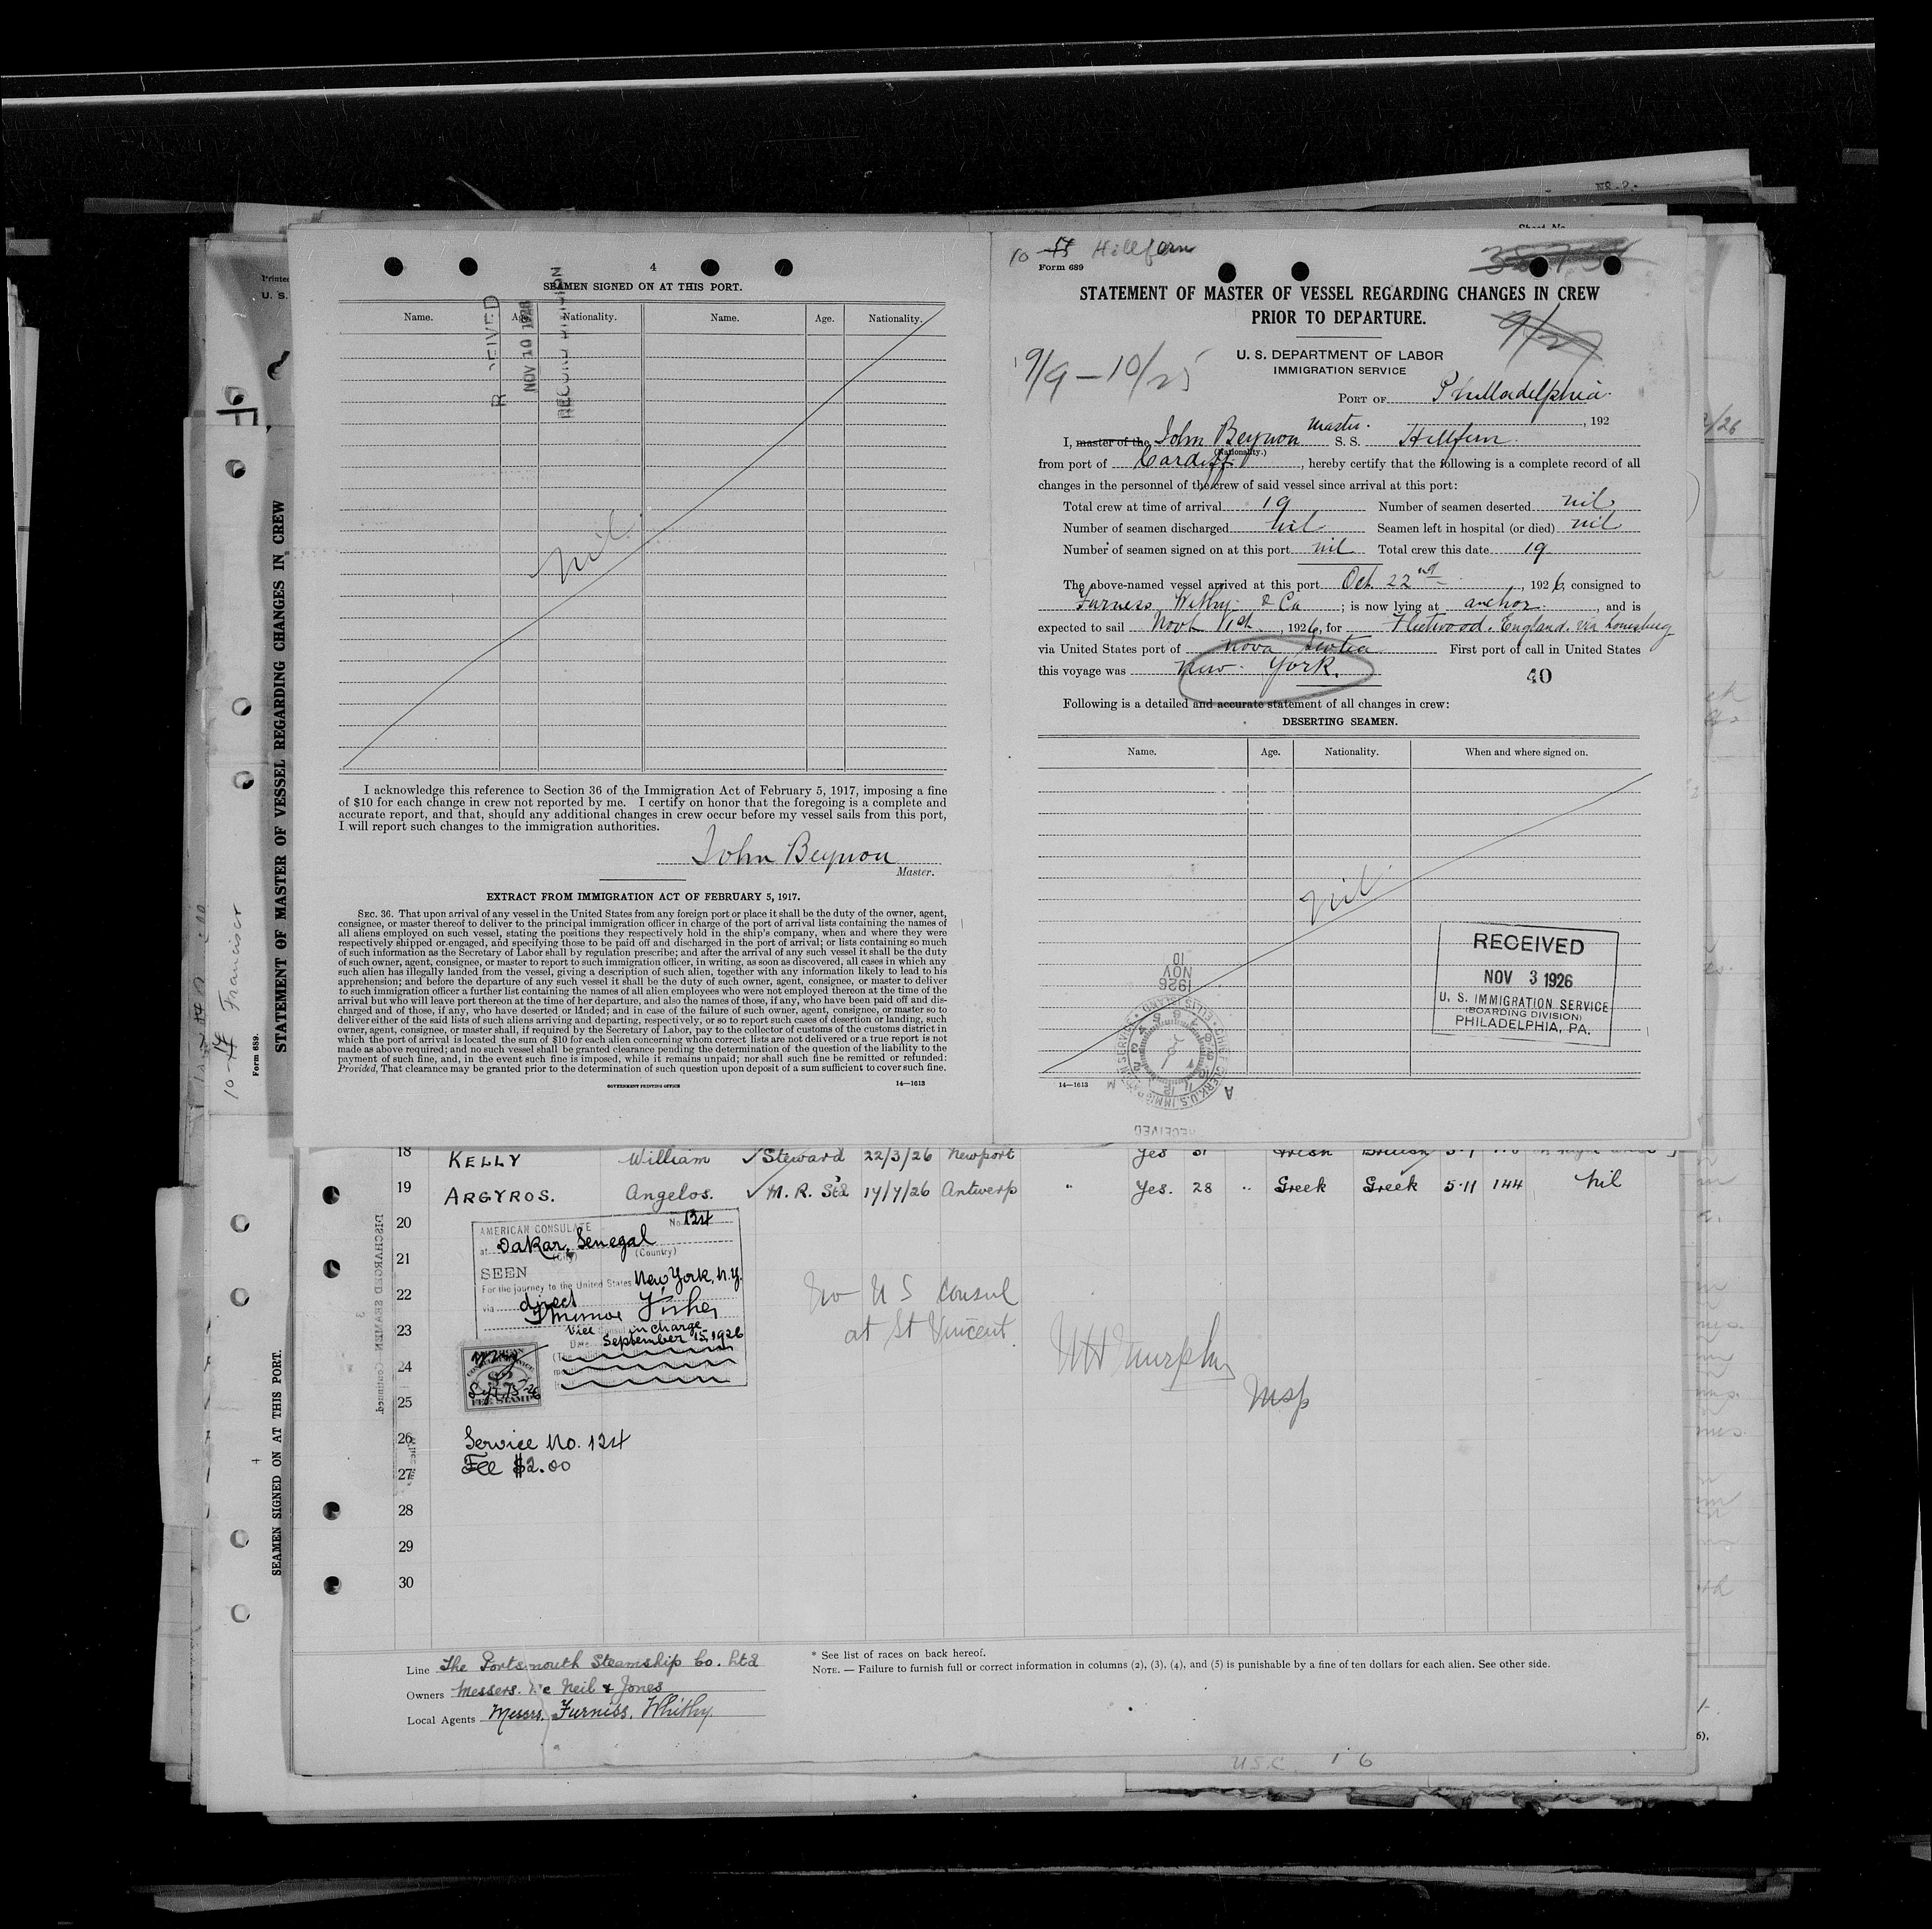 4
SEAMEN SIGNED ON AT THIS PORT.
Name. Age. Nationality. Name. Age. Nationality.
NOV 10 1926
nil
I acknowledge this reference to Section 36 of the Immigration Act of February 5, 1917, imposing a fine
of $10 for each change in crew not reported by me. I certify on honor that the foregoing is a complete and
accurate report, and that, should any additional changes in crew occur before my vessel sails from this port,
I will report such changes to the immigration authorities.
John Beynon
Master.
EXTRACT FROM IMMIGRATION ACT OF FEBRUARY 5, 1917.
SEC. 36. That upon arrival of any vessel in the United States from any foreign port or place it shall be the duty of the owner, agent,
consignee, or master thereof to deliver to the principal immigration officer in charge of the port of arrival lists containing the names of
all aliens employed on such vessel, stating the positions they respectively hold in the ship's company, when and where they were
respectively shipped or engaged, and specifying those to be paid off and discharged in the port of arrival; or lists containing so much
of such information as the Secretary of Labor shall by regulation prescribe; and after the arrival of any such vessel it shall be the duty
of such owner, agent, consignee, or master to report to such immigration officer, in writing, as soon as discovered, all cases in which any
such alien has illegally landed from the vessel, giving a description of such alien, together with any information likely to lead to his
apprehension; and before the departure of any such vessel it shall be the duty of such owner, agent, consignee, or master to deliver
to such immigration officer a further list containing the names of all alien employees who were not employed thereon at the time of the
arrival but who will leave port thereon at the time of her departure, and also the names of those, if any, who have been paid off and dis-
charged and of those, if any, who have deserted or landed; and in case of the failure of such owner, agent, consignee, or master so to
deliver either of the said lists of such aliens arriving and departing, respectively, or so to report such cases of desertion or landing, such
owner, agent, consignee, or master shall, if required by the Secretary of Labor, pay to the collector of customs of the customs district in
which the port of arrival is located the sum of $10 for each alien concerning whom correct lists are not delivered or a true report is not
made as above required; and no such vessel shall be granted clearance pending the determination of the question of the liability to the
payment of such fine, and, in the event such fine is imposed, while it remains unpaid; nor shall such fine be remitted or refunded:
Provided, That clearance may be granted prior to the determination of such question upon deposit of a sum sufficient to cover such fine.
GOVERNMENT PRINTING OFFICE 14—1613
10 Hillfern
Form 689
STATEMENT OF MASTER OF VESSEL REGARDING CHANGES IN CREW
PRIOR TO DEPARTURE.
9/9 – 10/25
U. S. DEPARTMENT OF LABOR
IMMIGRATION SERVICE
PORT OF Philladelphia
, 192
I, master of the John Beynon Master. S. S. Hillfern
(Nationality.)
from port of Cardiff, hereby certify that the following is a complete record of all
changes in the personnel of the crew of said vessel since arrival at this port:
Total crew at time of arrival 19 Number of seamen deserted nil
Number of seamen discharged nil Seamen left in hospital (or died) nil
Number of seamen signed on at this port nil Total crew this date 19
The above-named vessel arrived at this port Oct. 22nd, 1926, consigned to
Furness Withy & Co; is now lying at anchor, and is
expected to sail Novt 1st, 1926, for Fleetwood. England. via Louisburg
via United States port of Nova Scotia First port of call in United States
this voyage was New York.
40
Following is a detailed and accurate statement of all changes in crew:
DESERTING SEAMEN.
Name. Age. Nationality. When and where signed on.
nil
RECEIVED
NOV 3 1926
U. S. IMMIGRATION SERVICE
(BOARDING DIVISION)
PHILADELPHIA, PA.
14—1613
STATEMENT OF MASTER OF VESSEL REGARDING CHANGES IN CREW
Form 689.
SEAMEN SIGNED ON AT THIS PORT.
Francisco
18 KELLY William Steward 22/3/26 Newport Yes 31 Irish British
19 ARGYROS. Angelos. M. R. Std 17/7/26 Antwerp " Yes. 28 " Greek Greek 5·11 144 Nil
20
21
22
23
24
25
26
27
28
29
30
AMERICAN CONSULATE No. 124
at Dakar, Senegal
(City) (Country)
SEEN
For the journey to the United States New York, N.Y.
via direct
Vice Consul in charge
Date September 15, 1926
FEE STAMP
Service No. 124
Fee $2.00
No U S Consul
at St Vincent
Murphy
Insp
Line The Portsmouth Steamship Co. Ltd
Owners Messers. Mc Neil & Jones
Local Agents Messrs. Furniss, Whithy.
* See list of races on back hereof.
NOTE. — Failure to furnish full or correct information in columns (2), (3), (4), and (5) is punishable by a fine of ten dollars for each alien. See other side.
U.S.C. 1 6